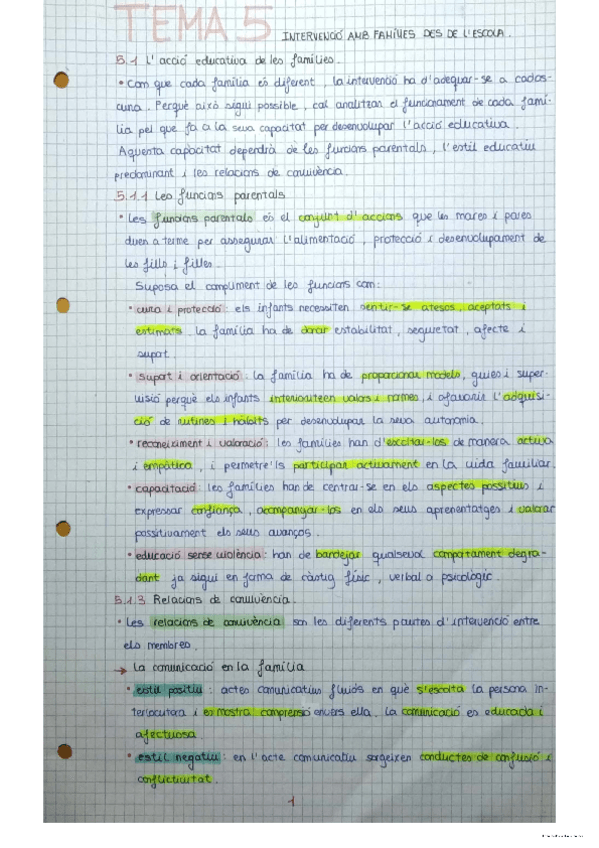 TEMA 5 INTERVENCIÓ AMB FAMÍLIES DES DE L'ESCOLA.
5.1 L'acció educativa de les famílies.
• Com que cada família és diferent, la intervenció ha d'adequar-se a cadas-
cuna. Perquè això sigui possible, cal analitzar el funcionament de cada famí-
lia pel que fa a la seva capacitat per desenvolupar l'acció educativa.
Aquesta capacitat dependrà de les funcions parentals, l'estil educatiu
predominant i les relacions de convivència.
5.1.1 Les funcions parentals
• Les funcions parentals és el conjunt d'accions que les mares i pares
duen a terme per assegurar l'alimentació, protecció i desenvolupament de
les fills i filles.
Suposa el compliment de les funcions com:
• cura i protecció: els infants necessiten sentir-se atesos, aceptats i
estimats. la família ha de donar estabilitat, seguretat, afecte i
suport.
• suport i orientació: la família ha de proporcionar models, guies i super-
visió perquè els infants interioritzen valors i normes, i afavorir l'adquisi-
ció de rutines i hàbits per desenvolupar la seva autonomia.
• reconeixement i valoració: les famílies han d'escoltar-los de manera activa
i empàtica, i permetre'ls participar activament en la vida familiar.
• capacitació: les famílies han de centrar-se en els aspectes possitius i
expressar confiança, acompanyar-los en els seus aprenentatges i valorar
possitivament els seus avanços.
• educació sense violència: han de bandejar qualsevol comportament degra-
dant ja sigui en forma de càstig físic, verbal o psicològic.
5.1.3 Relacions de convivència.
• Les relacions de convivència són les diferents pautes d'intervenció entre
els membres.
→ La comunicació en la família
• estil positiu: actes comunicatius fluids en què s'escolta la persona in-
terlocutora i es mostra comprensió envers ella. La comunicació es educada i
afectuosa
• estil negatiu: en l'acte comunicatiu sorgeixen conductes de confusió i
conflictivitat.
1